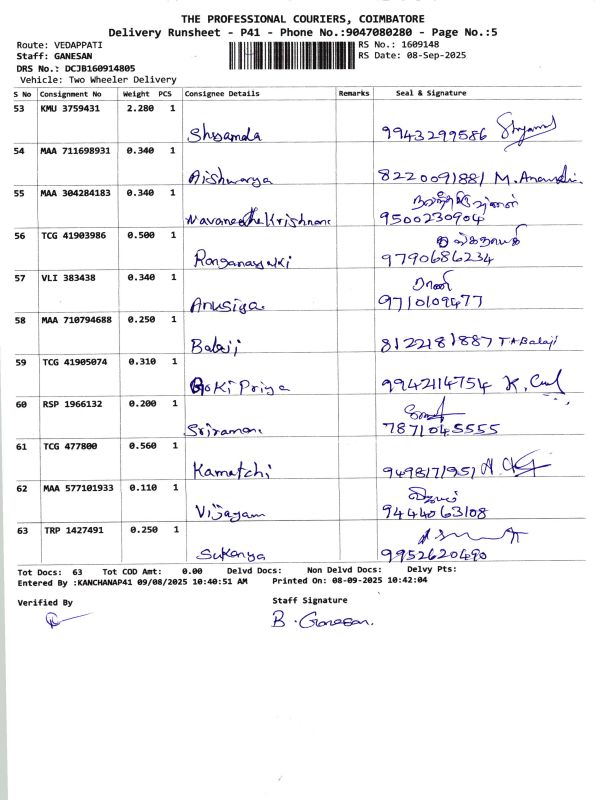 THE PROFESSIONAL COURIERS, COIMBATORE
Delivery Runsheet - P41 - Phone No.:9047080280 - Page No.:5
Route: VEDAPPATI RS No.: 1609148
Staff: GANESAN RS Date: 08-Sep-2025
DRS No.: DCJB160914805
Vehicle: Two Wheeler Delivery
S No Consignment No Weight PCS Consignee Details Remarks Seal & Signature
53 KMU 3759431 2.280 1
Shyamala 9943299586
54 MAA 711698931 0.340 1
Aishwarya 8220091881
55 MAA 304284183 0.340 1
Navaneetha Krishnan 9500230904
56 TCG 41903986 0.500 1
Ranganayaki 9790686234
57 VLI 383438 0.340 1
ராணி
Anusiya 9710109477
58 MAA 710794688 0.250 1
Balaji 8122181887 T A Balaji
59 TCG 41905074 0.310 1
Goki Priya 9942114754
60 RSP 1966132 0.200 1
Sriraman 7871045555
61 TCG 477800 0.560 1
Kamatchi 9498171951
62 MAA 577101933 0.110 1
Vijayam 9444063108
63 TRP 1427491 0.250 1
Sukanya 9952620490
Tot Docs: 63 Tot COD Amt: 0.00 Delvd Docs: Non Delvd Docs: Delvy Pts:
Entered By :KANCHANAP41 09/08/2025 10:40:51 AM Printed On: 08-09-2025 10:42:04
Verified By Staff Signature
B. Ganesan.